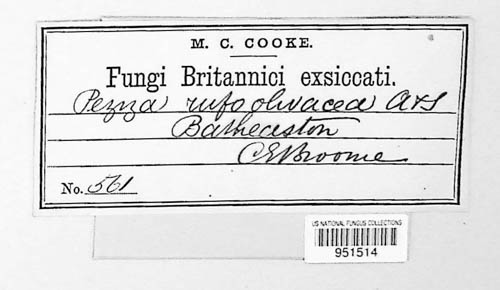 M. C. COOKE.
Fungi Britannici exsiccati.
Peziza rufo olivacea A&S
Batheaston
C E Broome
No. 561
US NATIONAL FUNGUS COLLECTIONS
951514